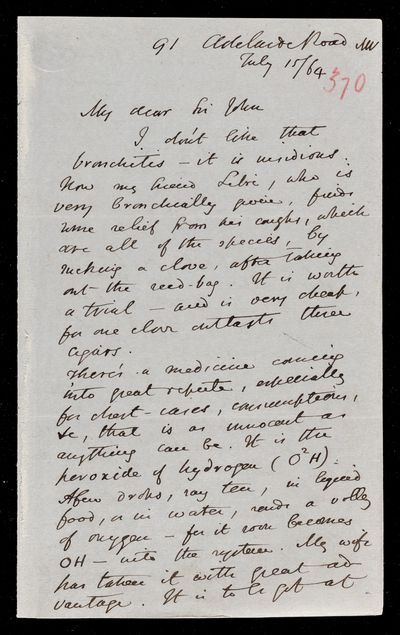 91 Adelaide Road NW
July 15/64
370
My dear Sir John
I don't like that
bronchitis - it is insidious.
Now my friend Libri, who is
very bronchially given, finds
some relief from his coughs, which
are all of the species, by
sucking a clove, after taking
out the seed-bag. It is worth
a trial - and is very cheap,
for one clove outlasts three
cigars.
There's a medicine coming
into great repute, especially
for chest-cases, consumptions,
&c, that is as innocent as
anything can be. It is the
peroxide of hydrogen (O²H).
A few drops, say ten, in liquid
food, or in water, sends a volley
of oxygen - for it soon becomes
OH - into the system. My wife
has taken it with great ad
vantage. It is to be got at